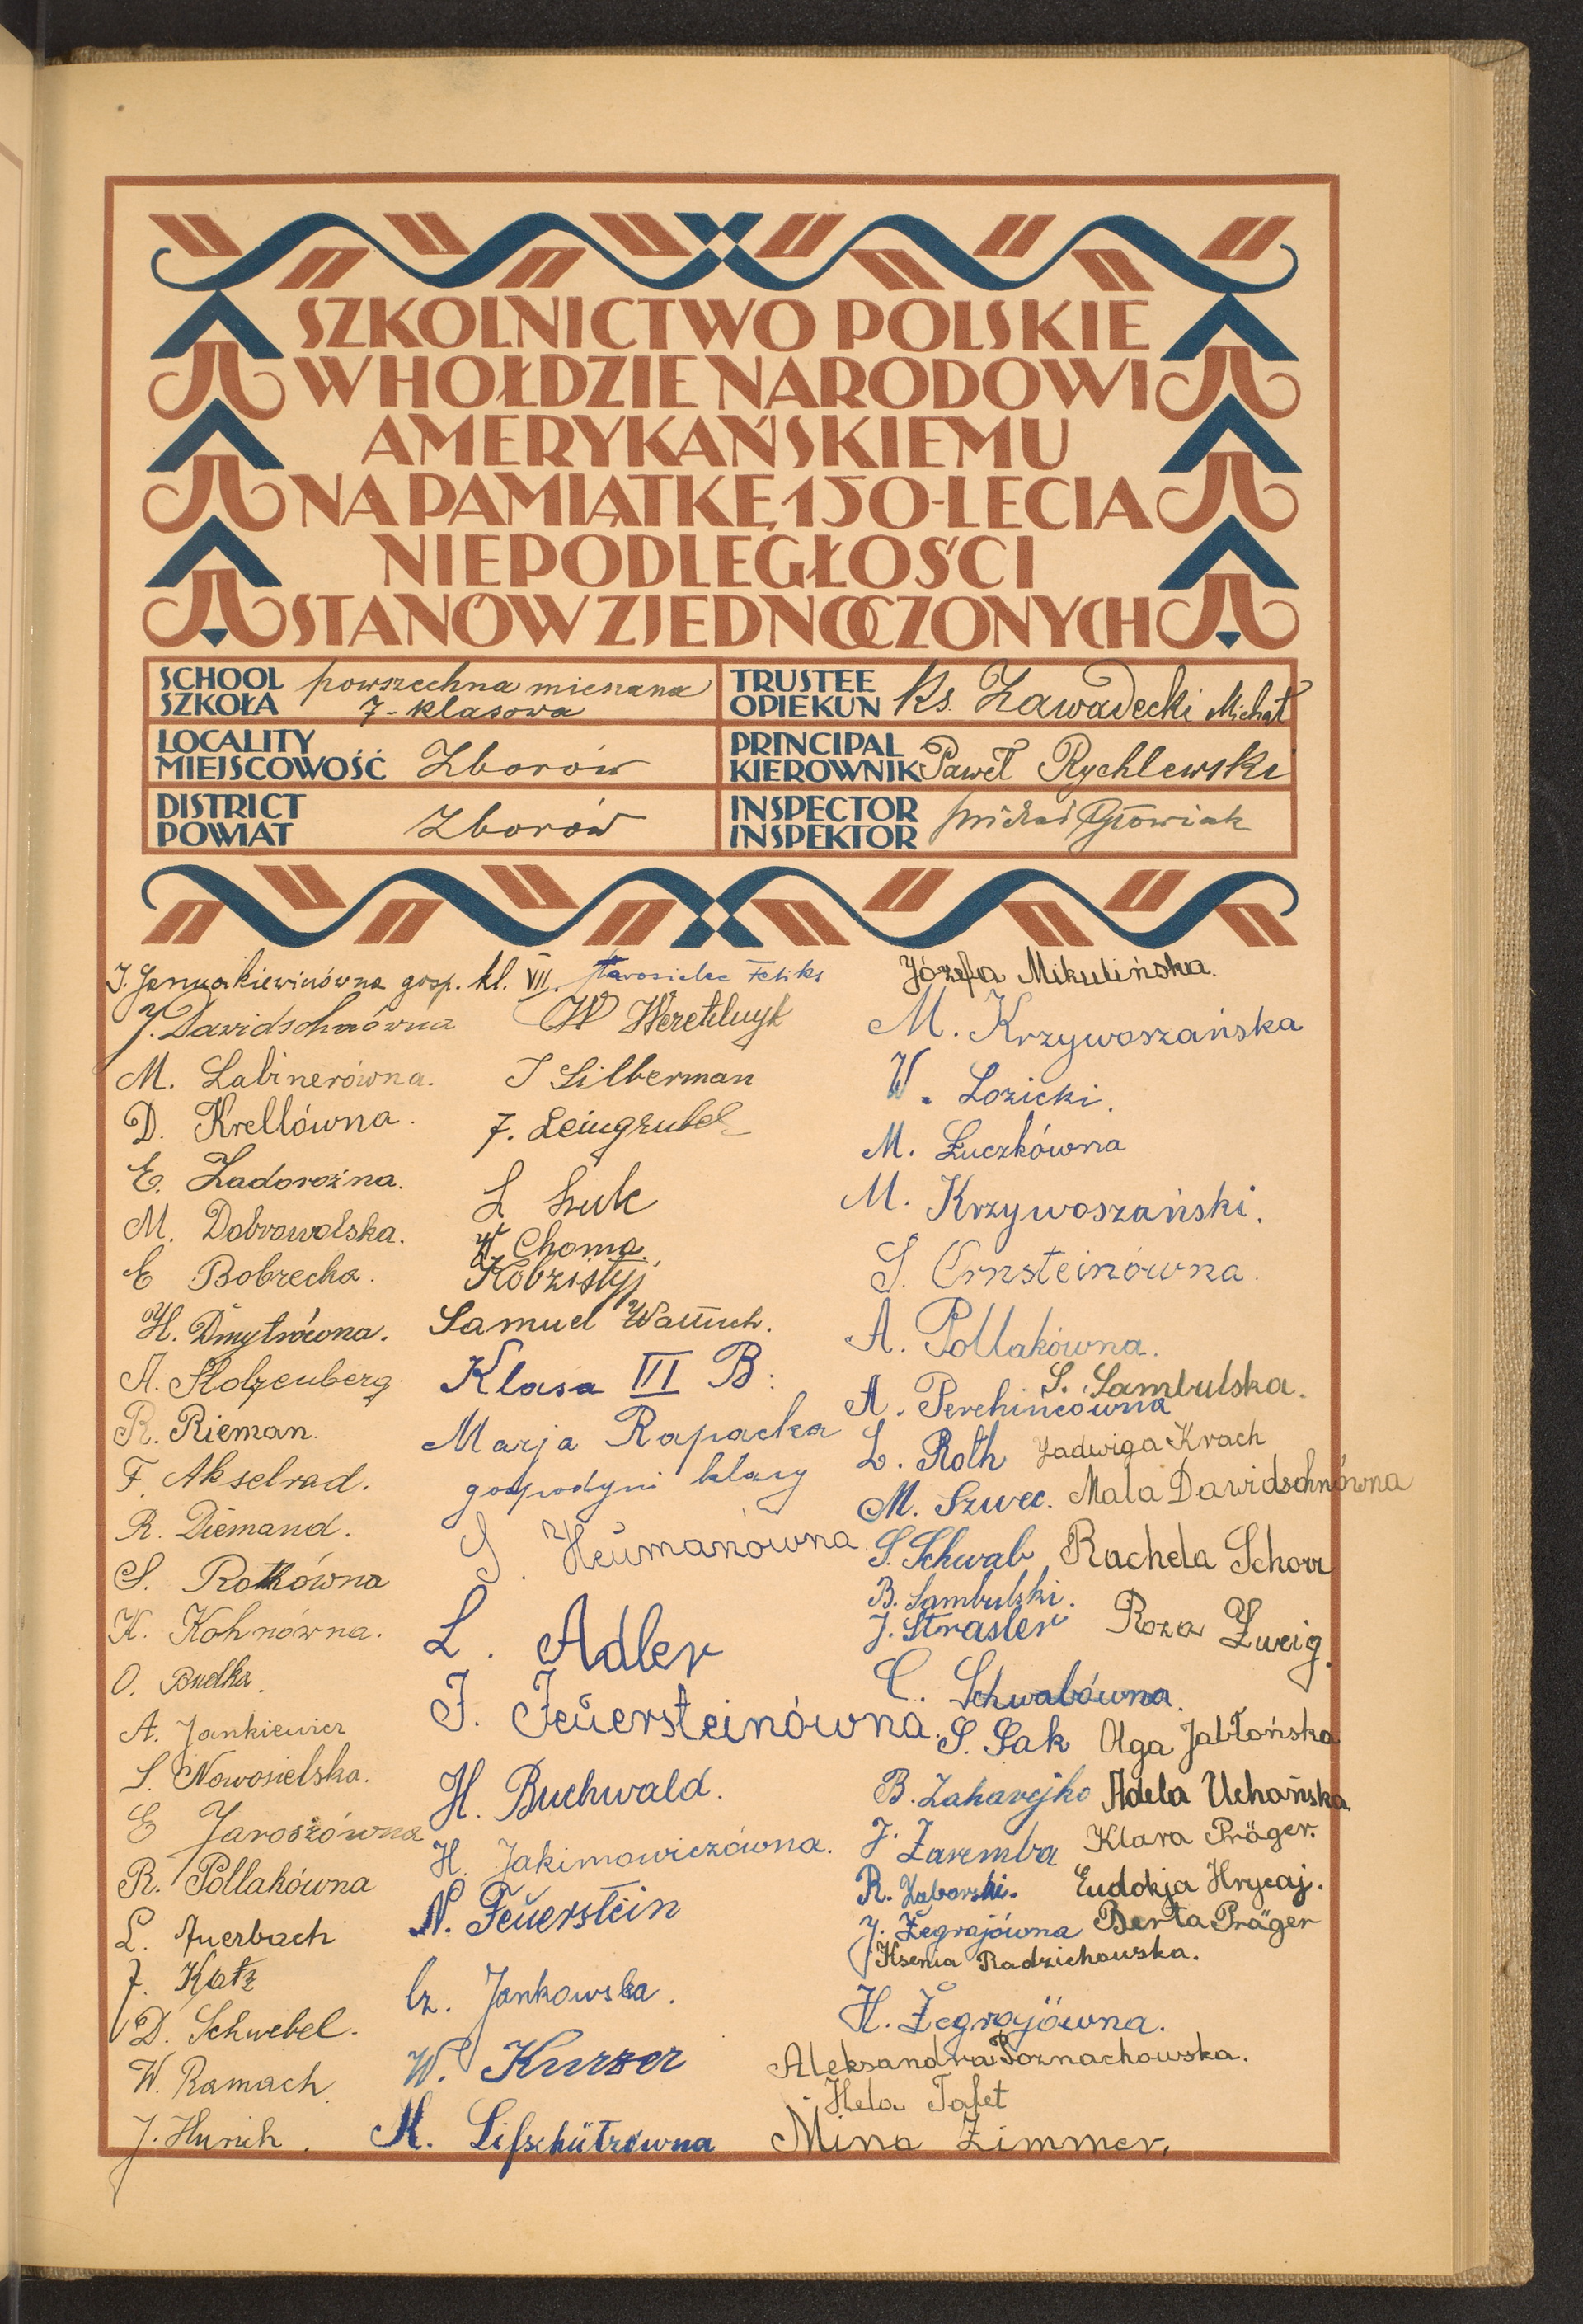 SZKOLNICTWO POLSKIE
W HOŁDZIE NARODOWI
AMERYKAŃSKIEMU
NA PAMIĄTKĘ 150-LECIA
NIEPODLEGŁOŚCI
STANÓW ZJEDNOCZONYCH
SCHOOL
SZKOŁA
powszechna mieszana
7-klasowa
TRUSTEE
OPIEKUN
Ks. Zawadecki Michał
LOCALITY
MIEJSCOWOŚĆ
Zborów
PRINCIPAL
KIEROWNIK
Paweł Rychlewski
DISTRICT
POWIAT
Zborów
INSPECTOR
INSPEKTOR
gosp. kl. VII.
J. Dawidschnówna
M. Labinerówna.
D. Krellówna.
E. Zadorożna.
M. Dobrowolska.
E Bobrecka.
H. Dmytrówna.
A. Stolzenberg.
R. Rieman.
F. Akselrad.
R. Diemand.
S. Rothówna
K. Kohnówna.
O. Budka.
A. Jankiewicz
S. Nowosielska.
E Jaroszówna
R. Pollakówna
L. Auerbach
J. Katz
D. Schwebel.
W. Ramach.
J. Hunich.
Starosielec Feliks
W
I Silberman
J. Leingrubel
W. Choma.
Kobzistyj
Samuel
Klasa VII B:
Marja Rapacka
gospodyni klasy
S. Heumanówna.
L. Adler
J. Feuersteinówna.
H. Buchwald.
H. Jakimowiczówna.
N. Feuerstein
Cz. Jankowska.
W. Kurzer
K. Lifschützówna
Józefa Mikulińska.
M. Krzywoszańska
W. Lozicki.
M. Łuczkówna
M. Krzywoszański.
S. Ornsteinówna.
A. Pollakówna.
S. Sambulska.
A. Perchińcówna
L. Roth Jadwiga Krach
M. Szwec. Mala Dawidschnówna
S. Schwab Rachela Schorr
B. Sambulski.
J. Strasler Roza Zweig.
C. Schwabówna.
S. Sak Olga Jabłońska
B. Zaharejko Adela Uchańska.
J. Zaremba Klara Präger.
R. Eudokja Hrycaj.
J. Żegrajówna Berta Präger
Ksenia Radziechowska.
H. Żegrajówna.
Aleksandra Poznachowska.
Hela Tafet
Mina Zimmer.